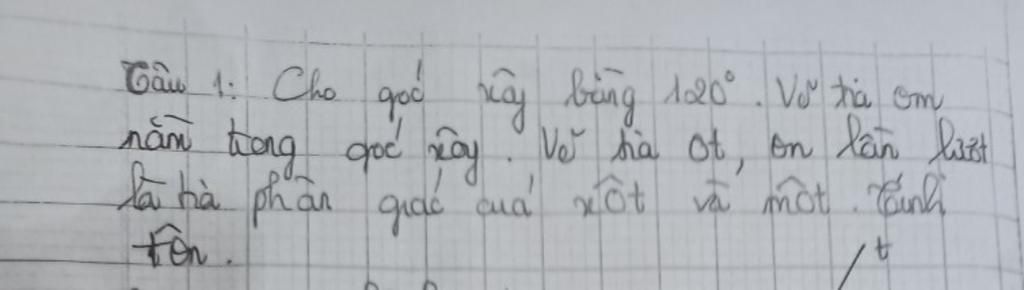 Câu 1: Cho góc xÔy bằng 120°. Vẽ tia om
nằm trong góc xÔy. Vẽ tia Ot, On lần lượt
là tia phân giác của xÔt và mÔt. Tính
tÔn.
t